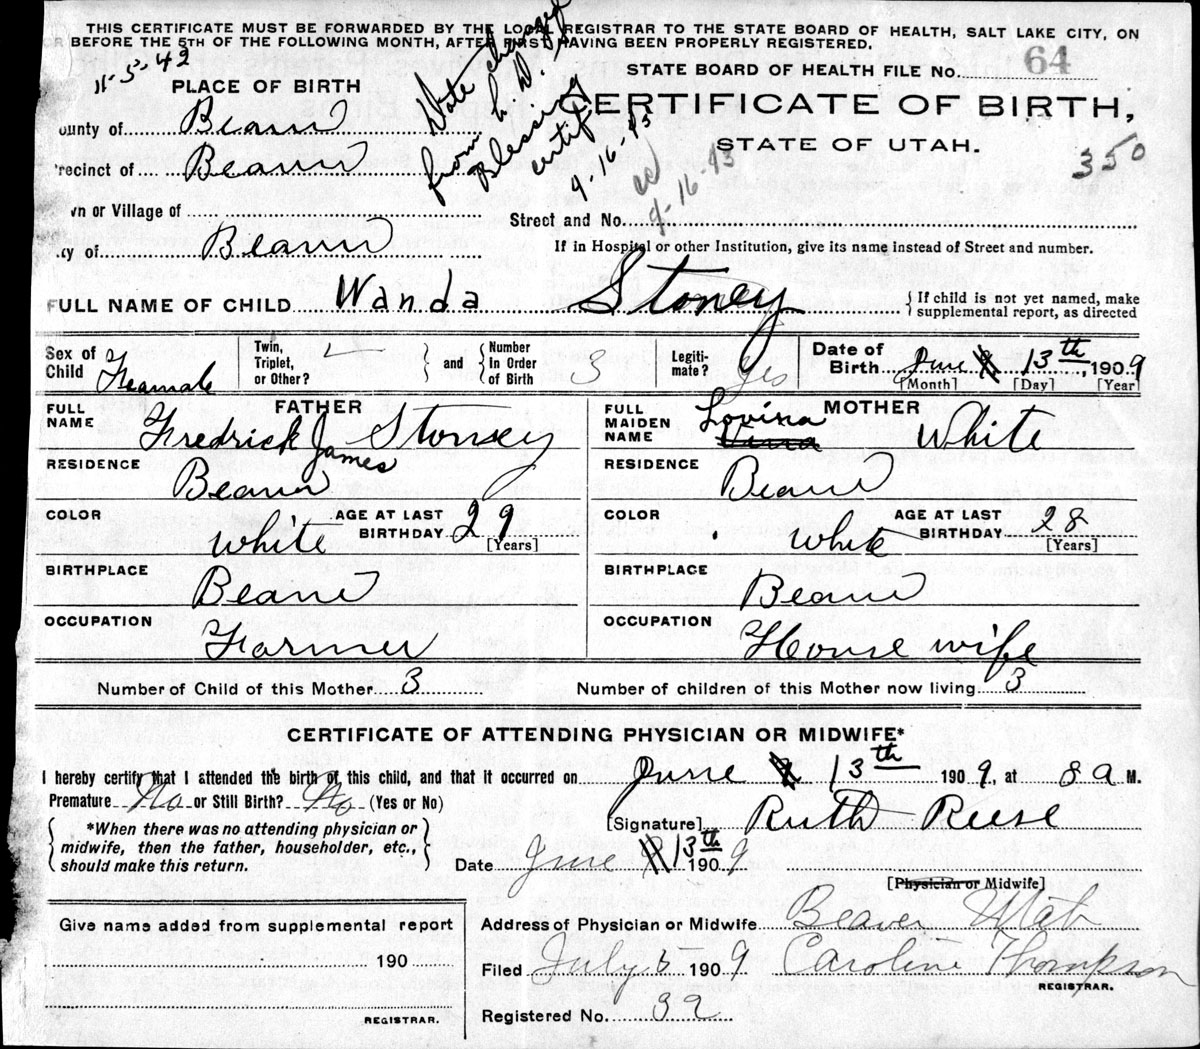 THIS CERTIFICATE MUST BE FORWARDED BY THE LOCAL REGISTRAR TO THE STATE BOARD OF HEALTH, SALT LAKE CITY, ON
OR BEFORE THE 5TH OF THE FOLLOWING MONTH, AFTER FIRST HAVING BEEN PROPERLY REGISTERED.
11-5-42
Date changed
from L. D. S.
Blessing
certif
9-16-43
9-16-43
STATE BOARD OF HEALTH FILE NO. 64
PLACE OF BIRTH
CERTIFICATE OF BIRTH,
STATE OF UTAH.
350
ounty of Beaver
recinct of Beaver
wn or Village of
Street and No.
ty of Beaver
If in Hospital or other Institution, give its name instead of Street and number.
FULL NAME OF CHILD Wanda Stoney { If child is not yet named, make supplemental report, as directed
Sex of Child Feamale Twin, Triplet, or Other? } and { Number In Order of Birth 3 Legiti-mate? yes Date of Birth June 13th, 1909
[Month] [Day] [Year]
FATHER MOTHER
FULL NAME Fredrick James Stoney
FULL MAIDEN NAME Lovina Vina White
RESIDENCE Beaver RESIDENCE Beaver
COLOR White AGE AT LAST BIRTHDAY 29 [Years] COLOR White AGE AT LAST BIRTHDAY 28 [Years]
BIRTHPLACE Beaver BIRTHPLACE Beaver
OCCUPATION Farmer OCCUPATION House wife
Number of Child of this Mother 3 Number of children of this Mother now living 3
CERTIFICATE OF ATTENDING PHYSICIAN OR MIDWIFE*
I hereby certify that I attended the birth of this child, and that it occurred on June 13th 1909, at 8 a M.
Premature No or Still Birth? No (Yes or No)
[Signature] Ruth Reese
{ *When there was no attending physician or midwife, then the father, householder, etc., should make this return. }
Date June 13th 1909
[Physician or Midwife]
Give name added from supplemental report
Address of Physician or Midwife Beaver Utah
190
Filed July 5 1909 Caroline Thompson
REGISTRAR.
REGISTRAR.
Registered No. 39